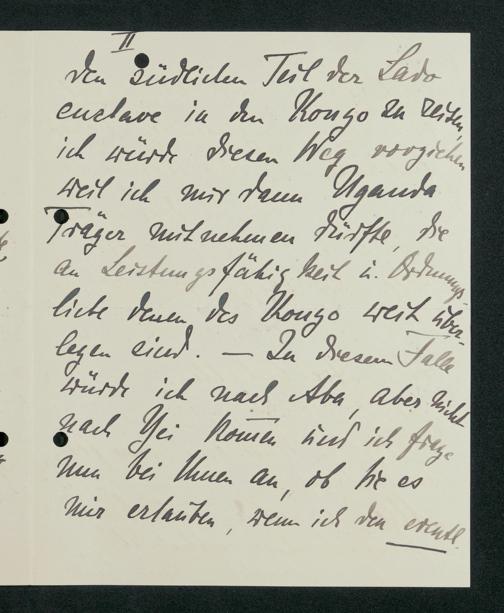 II
den südlichen Teil der Lado
enclave in den Kongo zu reisen,
ich würde diesen Weg vorziehen
weil ich mir dann Uganda
Träger mitnehmen dürfte, die
an Leistungsfähigkeit u. Ordnungs-
liebe denen des Kongo weit über-
legen sind. — In diesem Falle
würde ich nach Aba, aber nicht
nach Yei kom̅en und ich frage
nun bei Ihnen an, ob Sie es
mir erlauben, wenn ich den eventl.